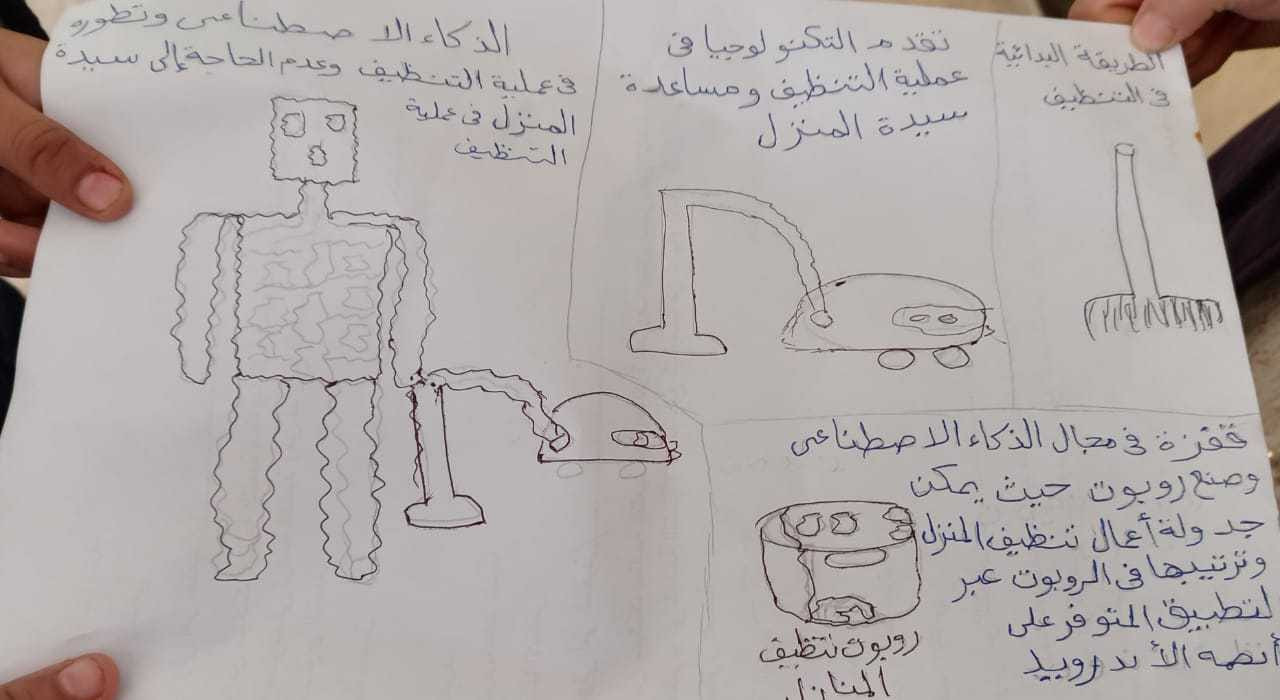 الطريقة البدائية
في التنظيف
تقدم التكنولوجيا في
عملية التنظيف ومساعدة
سيدة المنزل
الذكاء الاصطناعي وتطوره
في عملية التنظيف وعدم الحاجة إلى سيدة
المنزل في عملية
التنظيف
قفزة في مجال الذكاء الاصطناعي
وصنع روبوت حيث يمكن
جدولة أعمال تنظيف المنزل
وترتيبها في الروبوت عبر
لتطبيق المتوفر على
أنظمه الأندرويد
روبوت تنظيف
المنازل